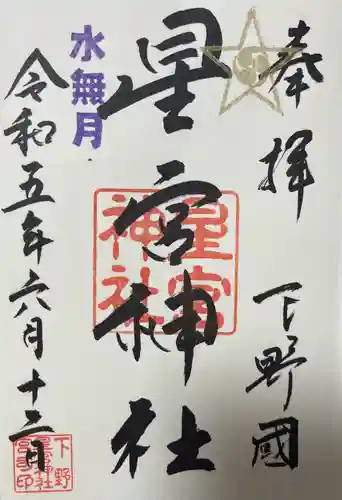 奉拝
下野國
星宮神社
星宮神社
水無月
令和五年六月十二月
下野
星宮神社
宮司印